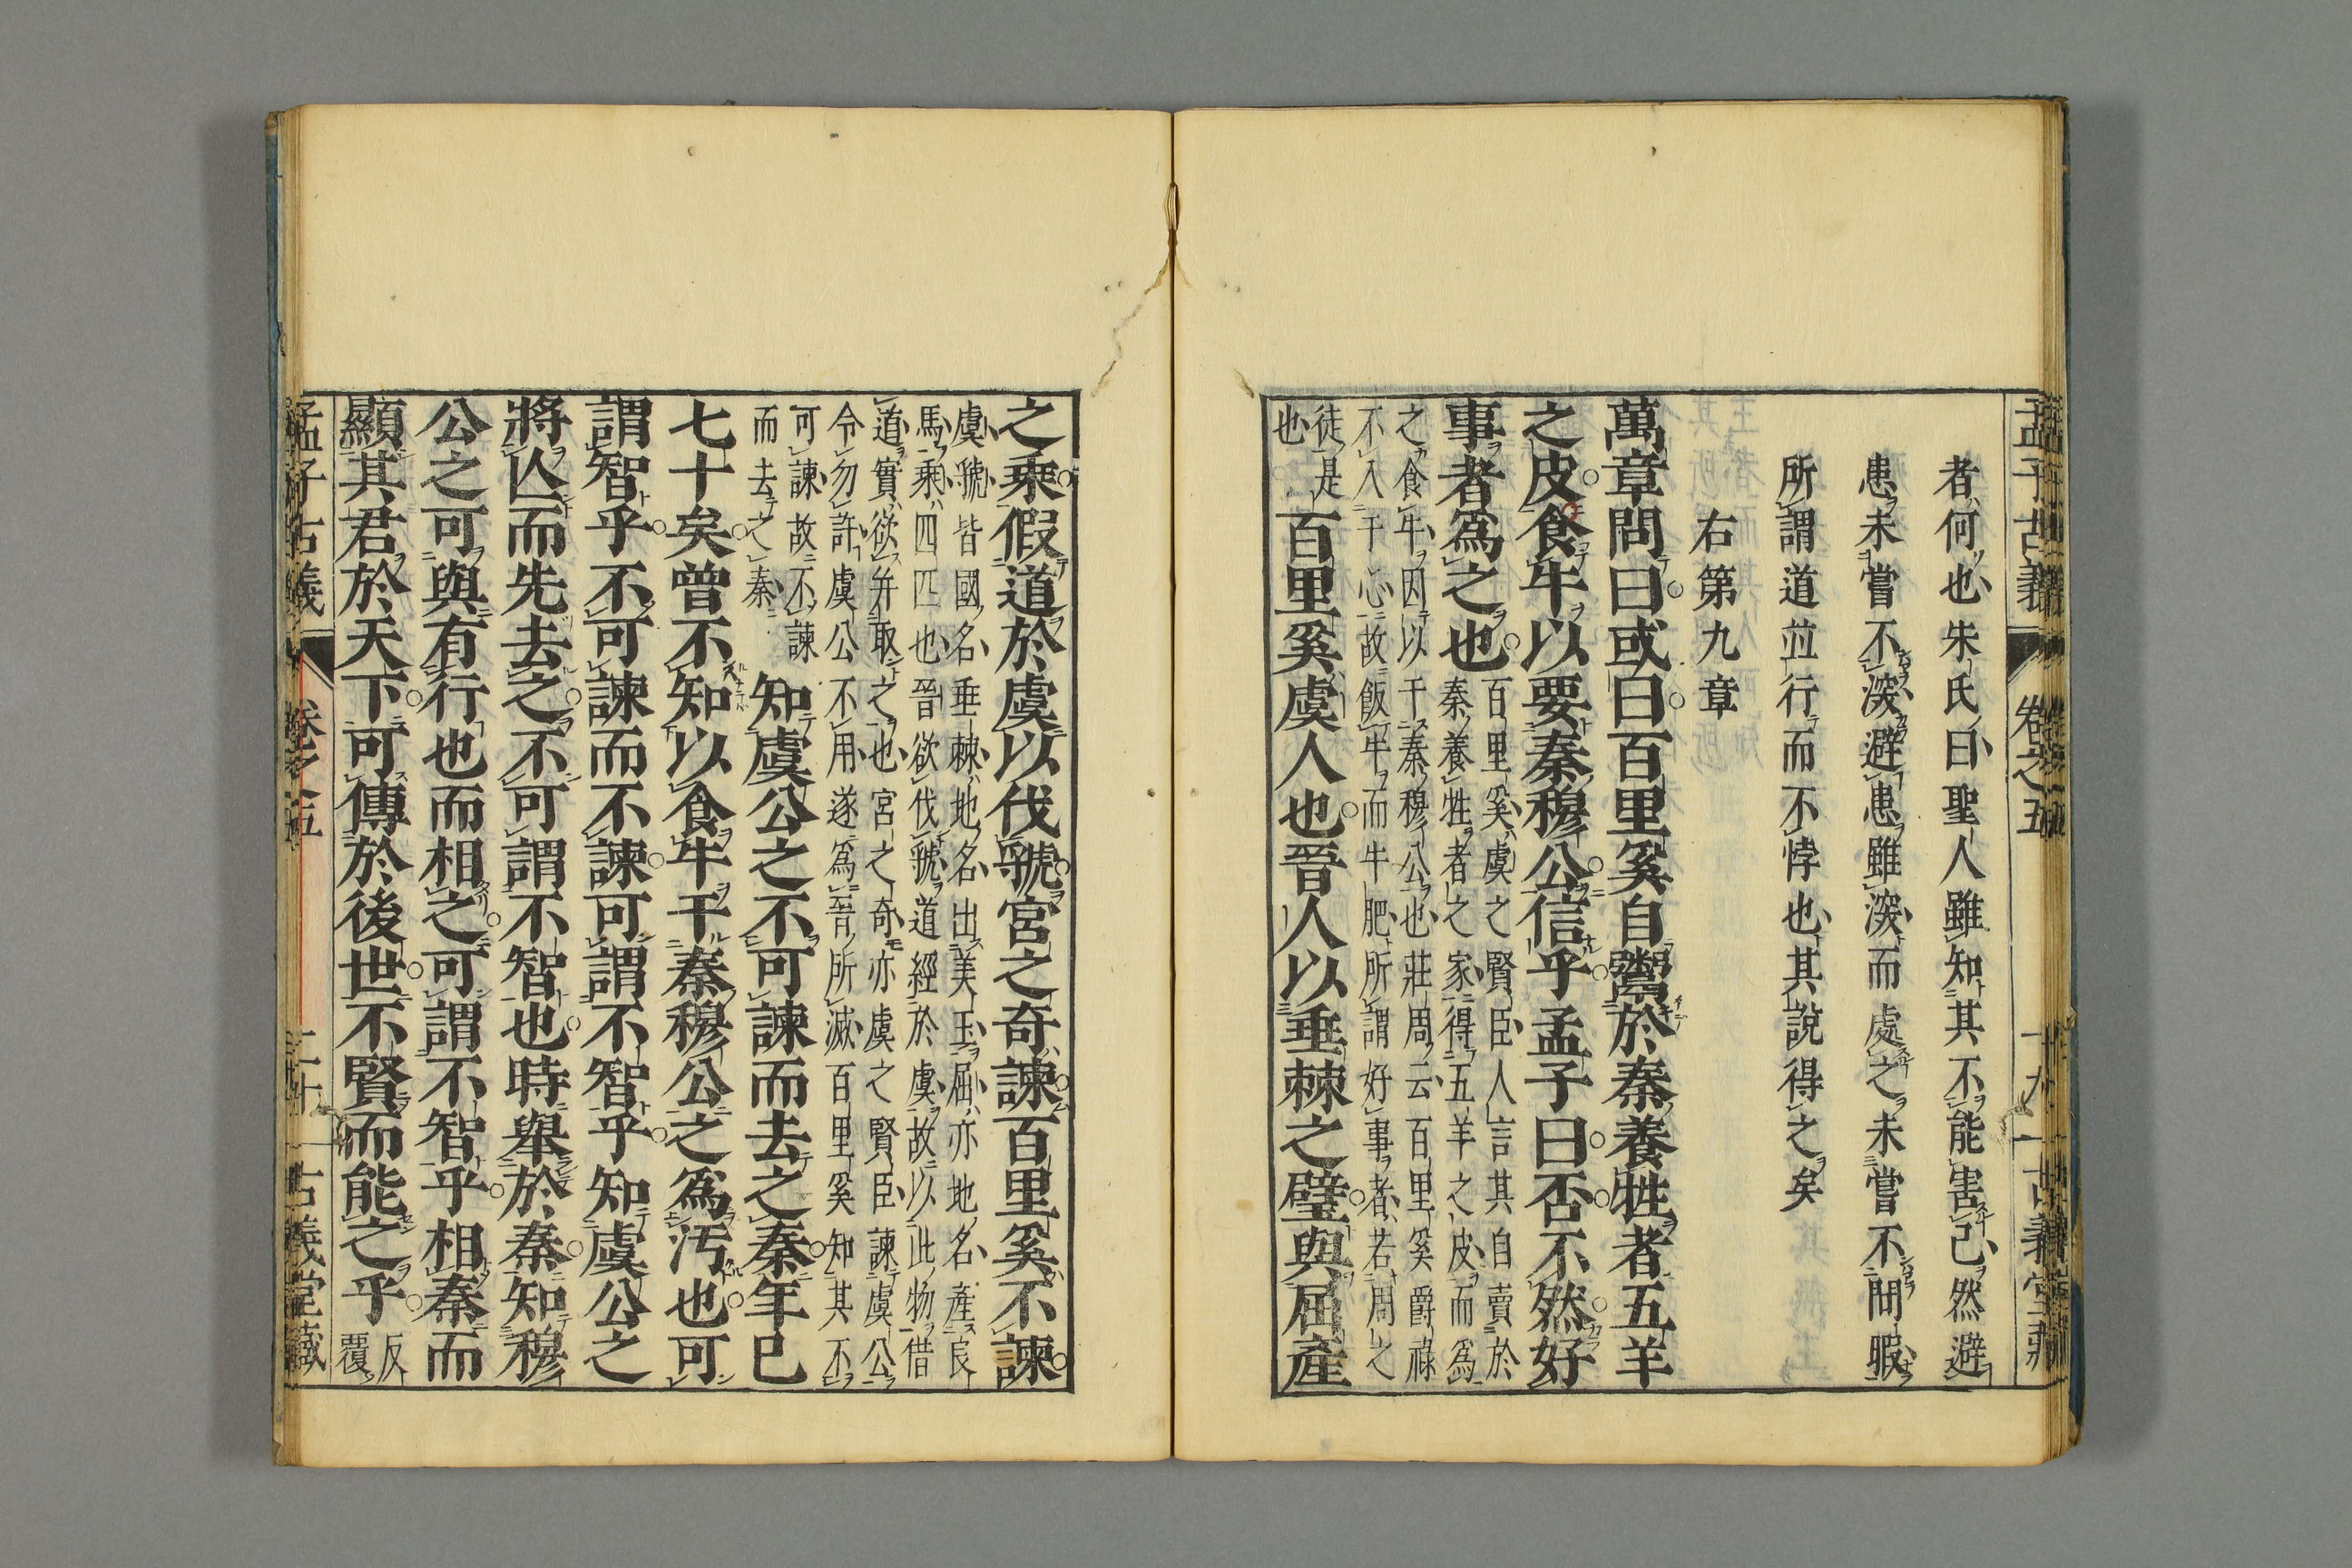 孟子古義 卷之五 十九 古義堂藏
者何也朱氏曰聖人雖知其不能害己然避
患未嘗不深避患雖深而處之未嘗不閒暇
所謂道並行而不悖也其說得之矣
右第九章
萬章問曰或曰百里奚自鬻於秦養牲者五羊
之皮食牛以要秦穆公信乎孟子曰否不然好
事者爲之也
百里奚虞之賢臣人言其自賣於
秦養牲者之家得五羊之皮而爲
之食牛因以干秦穆公也莊周云百里奚爵祿
不入于心故飯牛而牛肥所謂好事者若周之
徒是
也
百里奚虞人也晉人以垂棘之璧與屈產
之乘假道於虞以伐虢宮之奇諫百里奚不諫
虞虢皆國名垂棘地名出美玉屈亦地名產良
馬乘四匹也晉欲伐虢道經於虞故以此物借
道實欲并取之也宮之奇亦虞之賢臣諫虞公
令勿許虞公不用遂爲晉所滅百里奚知其不
可諫故不諫
而去之秦
知虞公之不可諫而去之秦年已
七十矣曾不知以食牛干秦穆公之爲汚也可
謂智乎不可諫而不諫可謂不智乎知虞公之
將亾而先去之不可謂不智也時舉於秦知穆
公之可與有行也而相之可謂不智乎相秦而
顯其君於天下可傳於後世不賢而能之乎
反
覆
孟子古義 卷之五 二十 古義堂藏